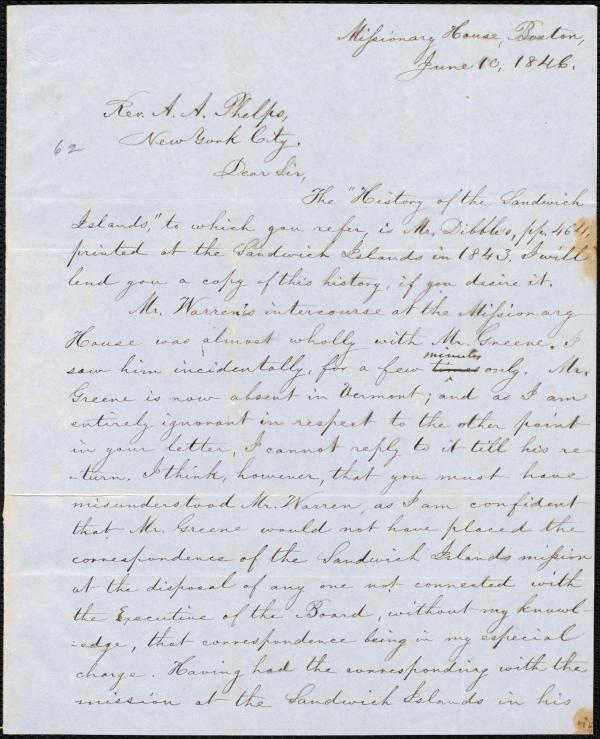 Missionary House, Boston,
June 10, 1846.
Rev. A. A. Phelps,
62
New York City.
Dear Sir,
The "History of the Sandwich
Islands," to which you refer, is Mr. Dibble's, pp. 464,
printed at the Sandwich Islands in 1843. I will
lend you a copy of this history, if you desire it.
Mr. Warren's intercourse at the Missionary
House was almost wholly with Mr. Greene. I
saw him incidentally, for a few times minutes only. Mr.
Greene is now absent in Vermont; and as I am
entirely ignorant in respect to the other point
in your letter, I cannot reply to it till his re-
-turn. I think, however, that you must have
misunderstood Mr. Warren, as I am confident
that Mr. Greene would not have placed the
correspondence of the Sandwich Islands mission
at the disposal of any one not connected with
the Executive of the Board, without my knowl-
-edge, that correspondence being in my especial
charge. Having had the corresponding with the
mission at the Sandwich Islands in his